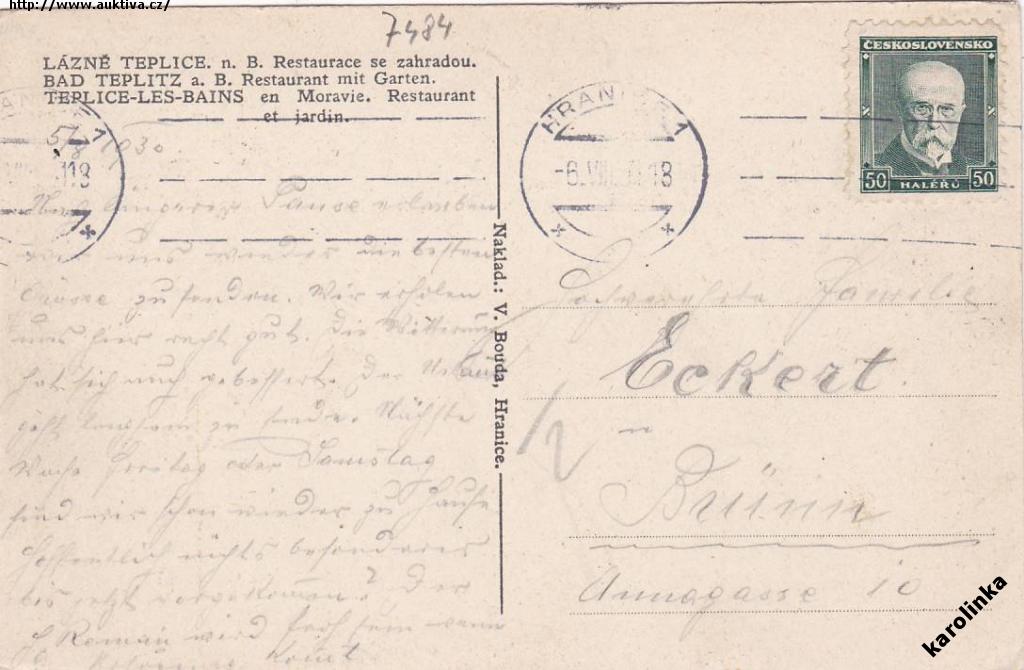 http://www.auktiva.cz/
7484
LÁZNĚ TEPLICE. n. B. Restaurace se zahradou.
BAD TEPLITZ a. B. Restaurant mit Garten.
TEPLICE-LES-BAINS en Moravie. Restaurant
et jardin.
5/8 1930
Nach Pause erlauben
wir uns wieder die besten
Grüsse zu senden. Wir erholen
uns hier recht gut. Die Witterung
hat sich auch gebessert. Der Urlaub
geht langsam zu Ende. Nächste
Woche Freitag oder Samstag
sind wir schon wieder zu Hause
Hoffentlich nichts besonderes
bis jetzt vorgekommen? Der
Roman wird froh sein wenn
kommt
Naklad.: V. Bouda, Hranice.
HRANICE 1
-6.VIII. 18
118
ČESKOSLOVENSKO
50 HALÉŘŮ 50
Familie
Eckert
in
Brünn
Annagasse 10
karolinka